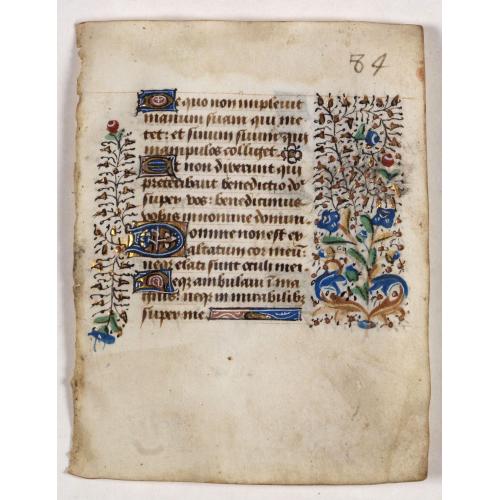 84
De quo non impleuit
manum suam qui me
tet: et sinum suum qui
manipulos colliget.
Et non dixerunt qui
preteribant benedictio dñi
super vos: benediximus
vobis in nomine domini.
Domine non est ex
altatum cor meũ
neq elati sunt oculi mei.
Neq ambulaui in ma
gnis: neq in mirabilib
super me.